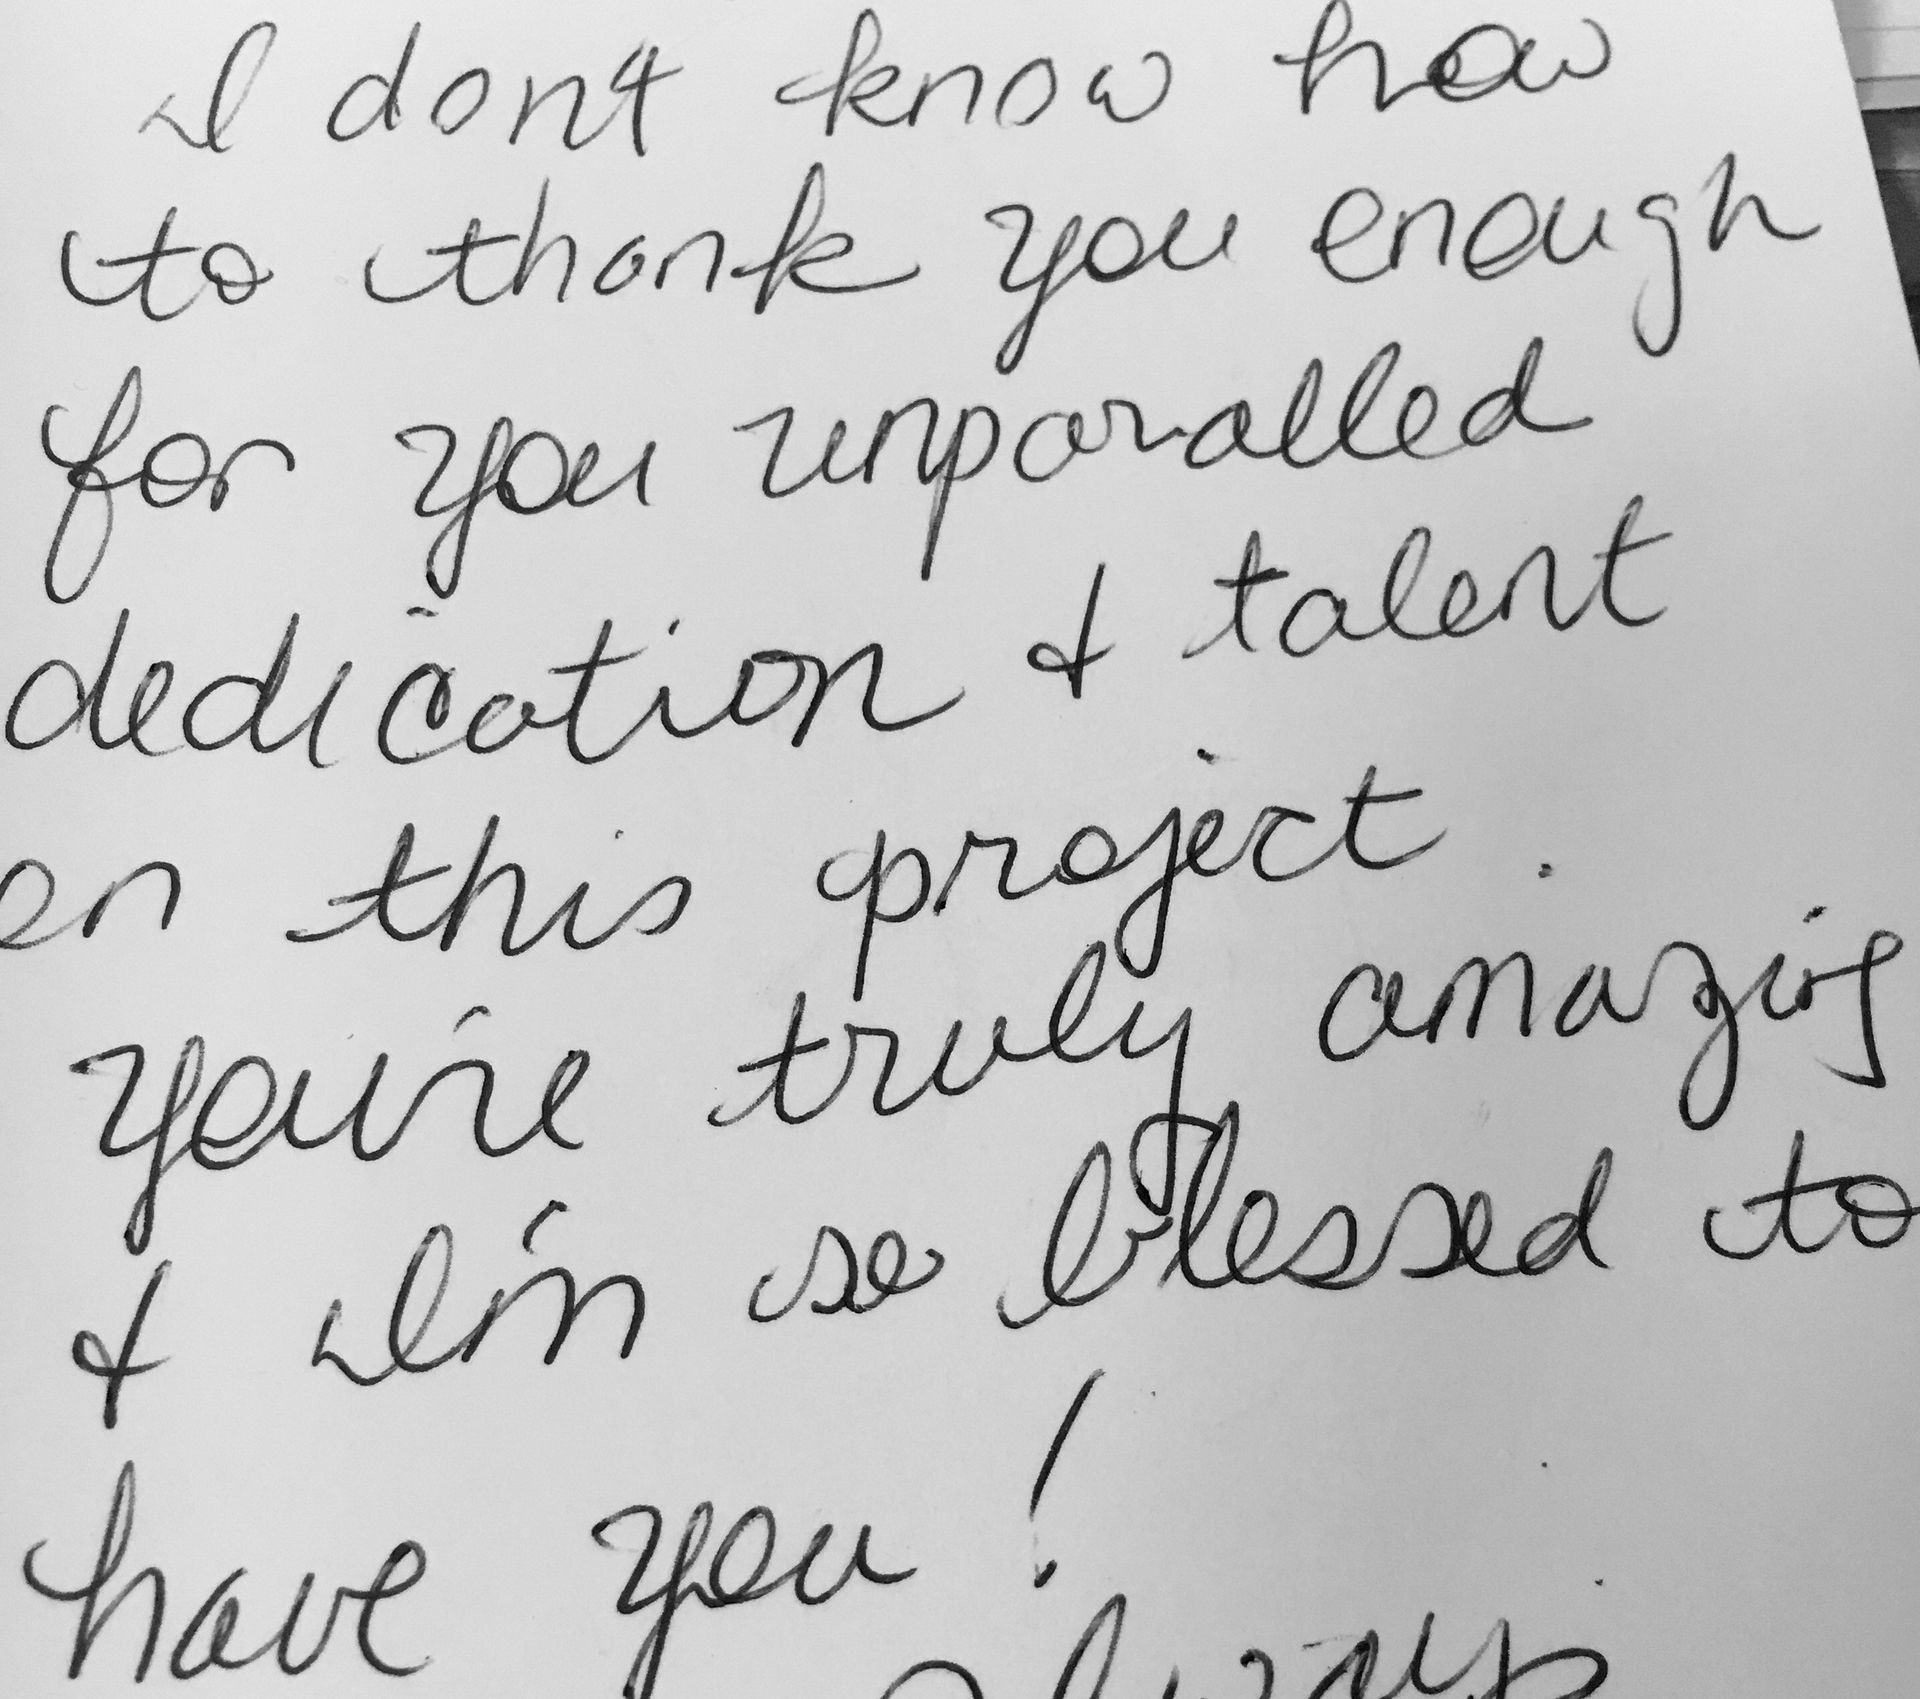 I dont know how
to thank you enough
for you unparalled
dedication & talent
on this project.
you're truly amazing
& I'm so blessed to
have you!
always